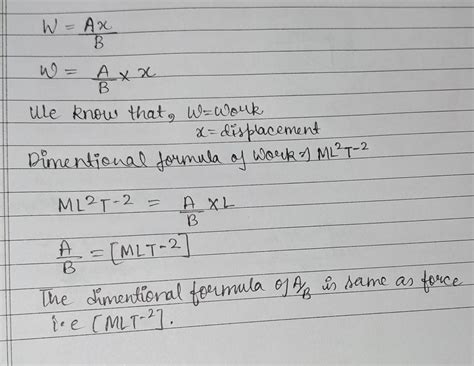 W = Ax/B
W = A/B × x
We know that, W=Work
x=displacement
Dimentional formula of Work of ML²T-2
ML²T-2 = A/B ×L
A/B = [MLT-2]
The dimentional formula of A/B is same as force
i.e [MLT-²].